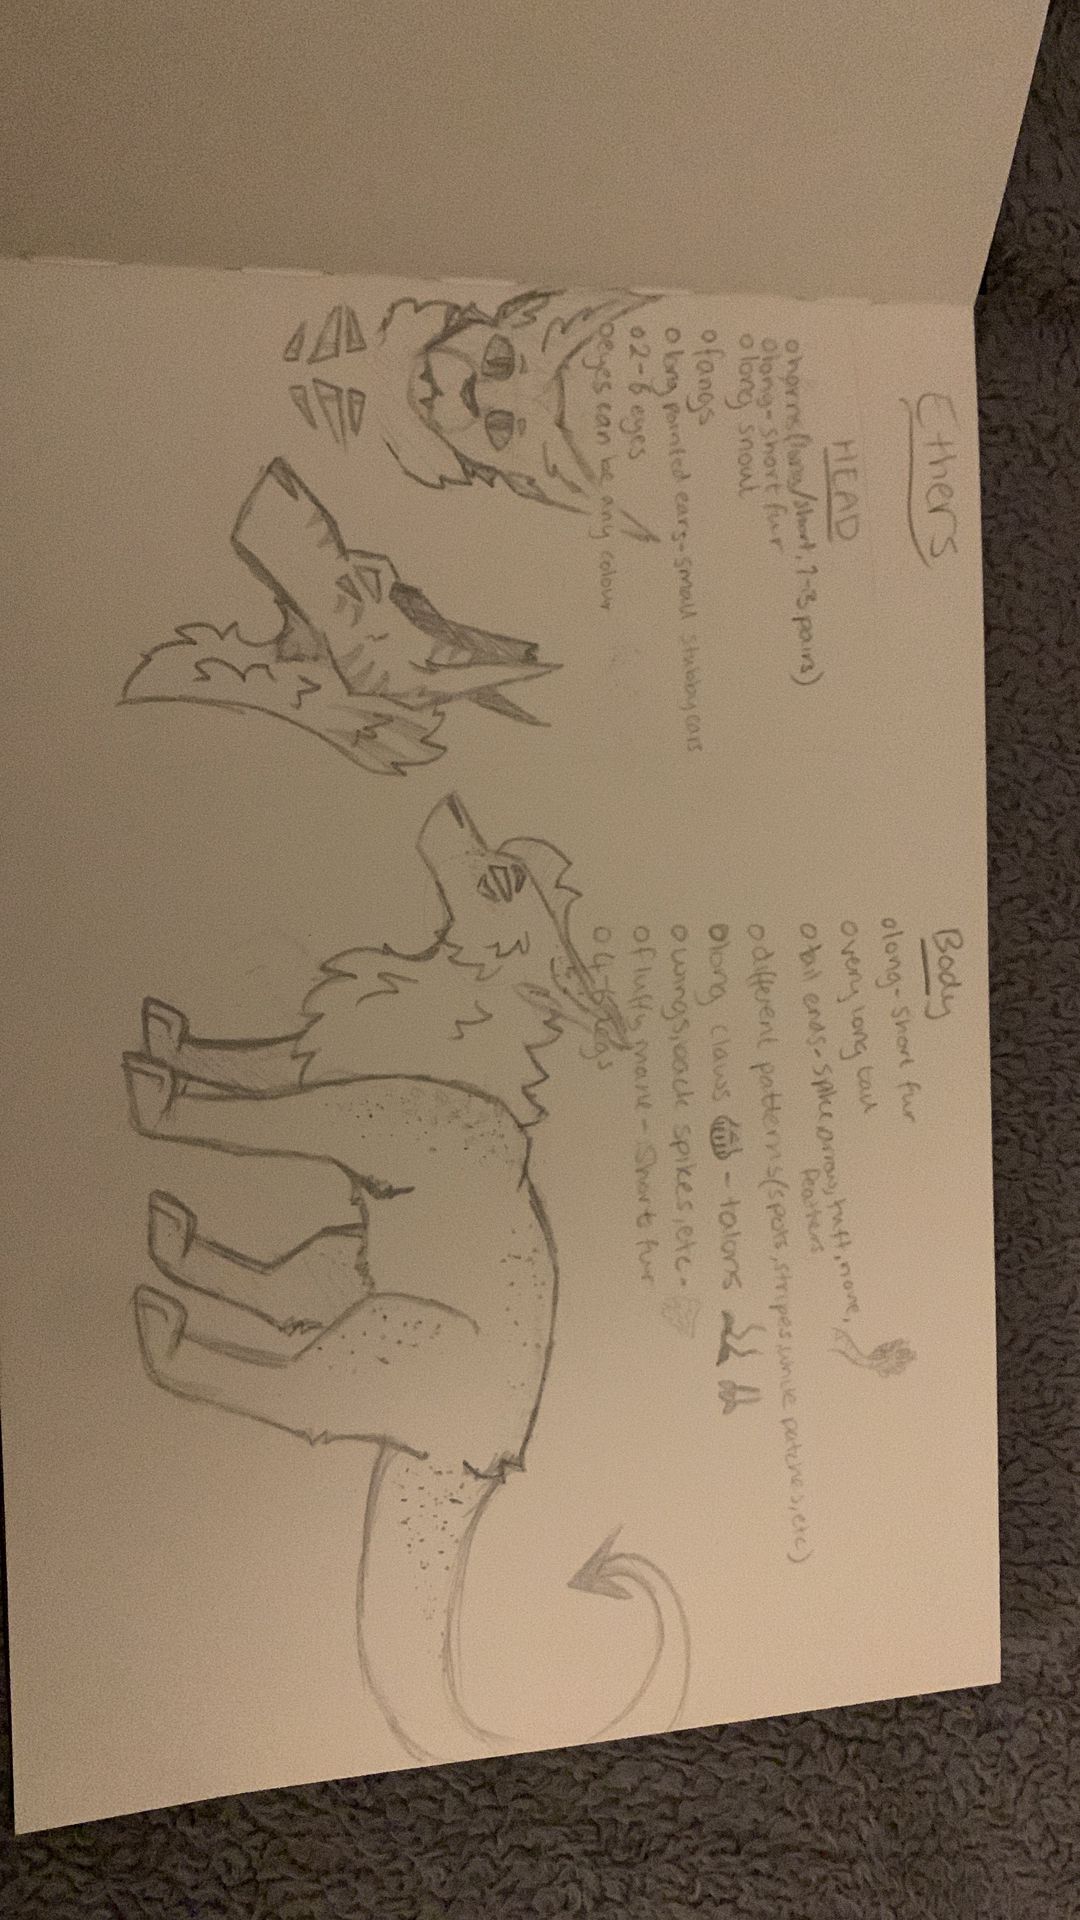 Ethers
HEAD
o horns (long/short, 1-3 pairs)
o long-short fur
o long snout
o fangs
o long pointed ears-small stubby ears
o 2-6 eyes
o eyes can be any colour
Body
o long-short fur
o very long tail
o tail ends-spike, arrow, tuft, none,
feathers
o different patterns (spots, stripes, unique patches, etc)
o long claws - talons
o wings, back spikes, etc-
o fluffy mane - short fur
o 4-6 legs